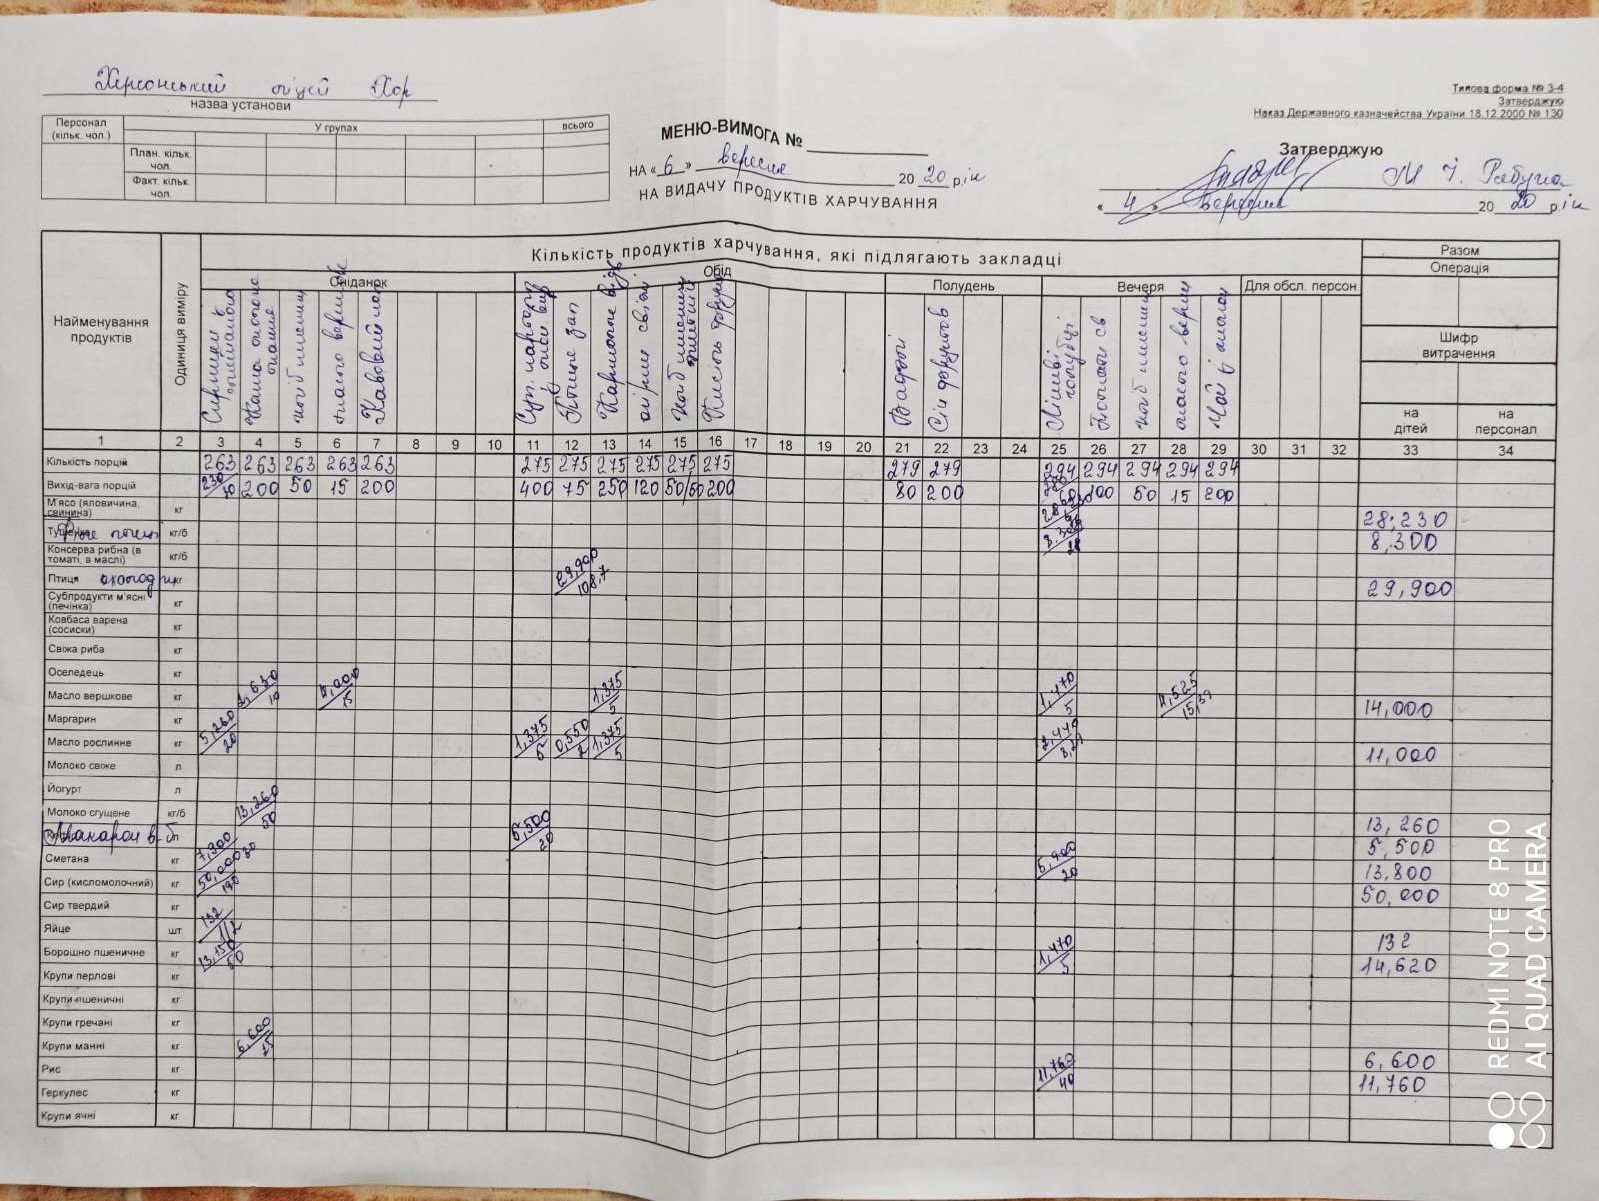 Херсонський ліцей Хор
назва установи
Типова форма № З-4
Затверджую
Наказ Державного казначейства України 18.12.2000 № 130
Персонал (кільк. чол.)
У групах
всього
План. кільк. чол.
Факт. кільк. чол.
МЕНЮ-ВИМОГА №
НА « 6 » вересня 20 20 рік
НА ВИДАЧУ ПРОДУКТІВ ХАРЧУВАННЯ
Затверджую
« 4 » вересня 20 20 рік
Найменування продуктів
Одиниця виміру
Кількість продуктів харчування, які підлягають закладці
Разом
Операція
Сніданок
Обід
Полудень
Вечеря
Для обсл. персон.
Шифр витрачення
на дітей
на персонал
1 2 3 4 5 6 7 8 9 10 11 12 13 14 15 16 17 18 19 20 21 22 23 24 25 26 27 28 29 30 31 32 33 34
Кількість порцій 263 263 263 263 263 275 275 275 275 275 275 279 279 294 294 294 294 294
Вихід-вага порцій 230 200 50 15 200 400 75 250 120 50/50 200 80 200 100 50 15 200
М'ясо (яловичина, свинина) кг 28,230
кг/б 8,300
Консерва рибна (в томаті, в маслі) кг/б
Птиця охолодж кг 29,900/108,7 29,900
Субпродукти м'ясні (печінка) кг
Ковбаса варена (сосиски) кг
Свіжа риба кг
Оселедець кг
Масло вершкове кг 2,630/10 4,000/15 1,375/5 1,470/5 4,525/15,39 14,000
Маргарин кг
Масло рослинне кг 5,260/20 1,375/5 0,550/2 1,375/5 2,440/8,29 11,000
Молоко свіже л
Йогурт л
Молоко сгущене кг/б 13,260/50 13,260
Макарон в. б 5,500/20 5,500
Сметана кг 7,900/30 5,900/20 13,800
Сир (кисломолочний) кг 50,000/190 50,000
Сир твердий кг
Яйце шт 132 1/2 132
Борошно пшеничне кг 13,150/50 1,470/5 14,620
Крупи перлові кг
Крупи пшеничні кг
Крупи гречані кг
Крупи манні кг 6,600/25 6,600
Рис кг 11,760/40 11,760
Геркулес кг
Крупи ячні кг
REDMI NOTE 8 PRO
AI QUAD CAMERA